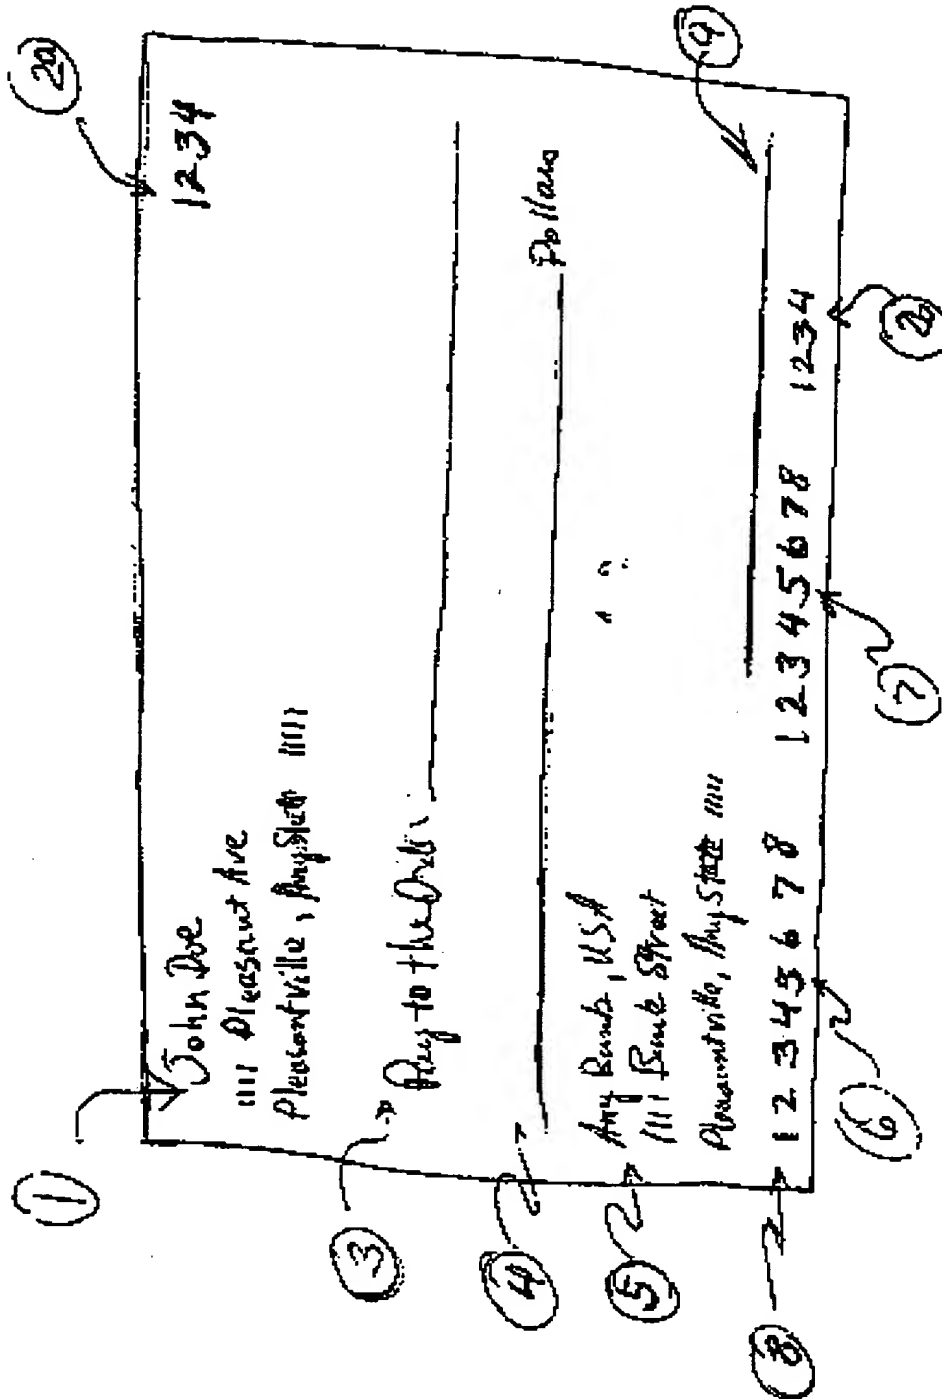 2a
1
John Doe 1234
1111 Pleasant Ave
Pleasantville, AnyState 11111
3
Pay to the Order
4
Dollars
Any Bank, USA
5
1111 Bank Street
Pleasantville, AnyState 11111
9
8
1 2 3 4 5 6 7 8 1 2 3 4 5 6 7 8 1 2 3 4
6
7
2b